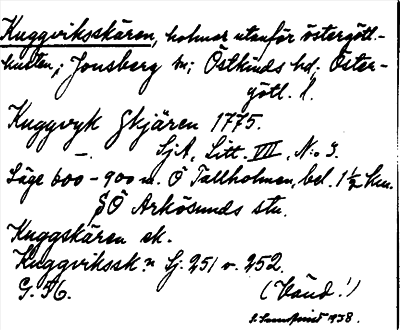 Kuggviksskären, holmar utanför östergötl.-
kusten; Jonsberg sn; Östkinds hd; Öster-
götl. l.
Kuggvyk Skjären 1775.
SjA, Litt. VIII, No 3.
Läge 600-900 m. Ö Tallholmen, bel. 1 1/2 km.
SÖ Arkösunds stn.
Kuggskären ek.
Kuggvikssk.n Sj. 251 o. 252.
G. 56. (Vänd!)
1938.